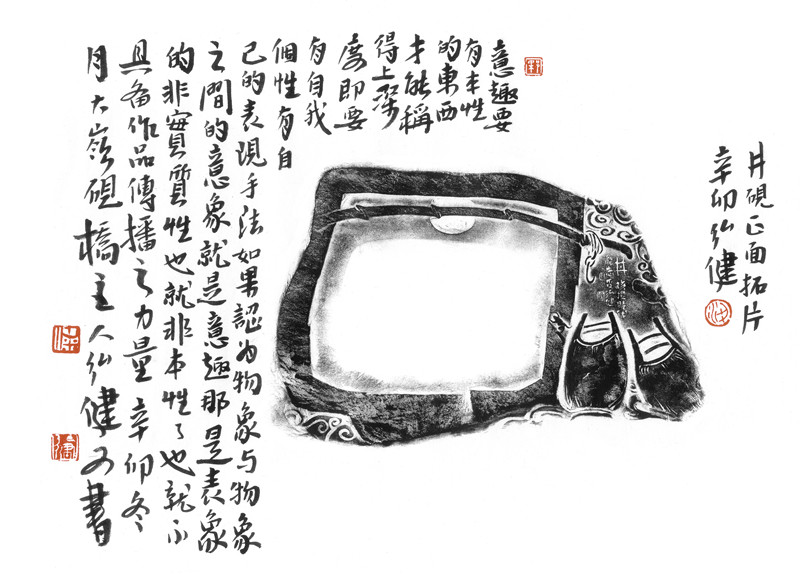 井硯正面拓片
辛卯弘健
意趣要
有本性
的東西
才能稱
得上深
度即要
有自我
個性有自
己的表現手法如果認为物象与物象
之間的意象就是意趣那是表象
的非實質性也就非本性了也就不
具备作品傳播之力量辛卯冬
月大嶺硯橋主人弘健又書
井